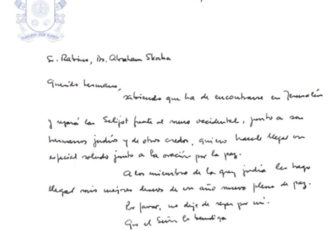 Sr. Rabino, Dr. Abraham Skorka
Querido hermano,
sabiendo que ha de encontrarse en Jerusalén
y rezará las Selijot frente al muro occidental, junto a sus
hermanos judíos y de otros credos, quiero hacerle llegar un
especial saludo junto a la oración por la paz.
A los miembros de la grey judía les hago
llegar mis mejores deseos de un año nuevo pleno de paz.
Por favor, no deje de rezar por mí.
Que el Señor lo bendiga